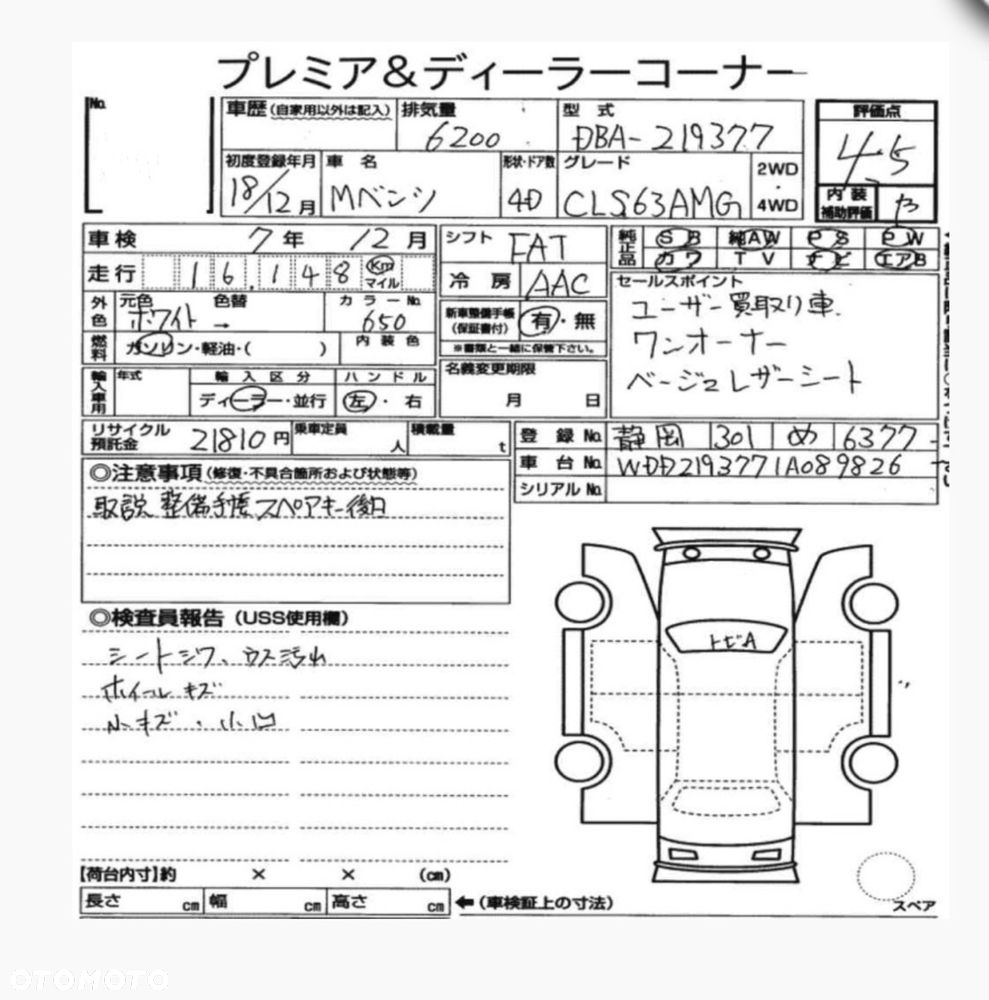 プレミア&ディーラーコーナー
No.
車歴(自家用以外は記入) 排気量 型式 評価点
6200 DBA-219377 4.5
初度登録年月 車名 形状・ドア数 グレード 2WD・4WD 内装補助評価
18/12月 Mベンツ 4D CLS63AMG
車検 7年 12月 シフト FAT 純正品 SR 純AW PS PW
カワ TV ナビ エアB
走行 16,148 Km マイル 冷房 AAC セールスポイント
外色 元色 色替 カラーNo. 新車整備手帳(保証書付) 有・無 ユーザー買取り車.
ホワイト → 650 ※書類と一緒に保管下さい。 ワンオーナー
燃料 ガソリン・軽油・( ) 内装色 名義変更期限 ベージュレザーシート
輸入車用 年式 輸入区分 ハンドル 月 日
ディーラー・並行 左・右
リサイクル預託金 21810円 乗車定員 人 積載量 t 登録No. 静岡 301 め 6377
車台No. WDD2193771A089826
◎注意事項(修復・不具合箇所および状態等) シリアルNo.
取説 整備手帳 スペアキー後日
◎検査員報告(USS使用欄)
シートシワ、ウス汚れ
ホイールキズ
小キズ・小凹
トビA
【荷台内寸】約 × × (cm)
長さ cm 幅 cm 高さ cm ←(車検証上の寸法)
スペア
OTOMOTO